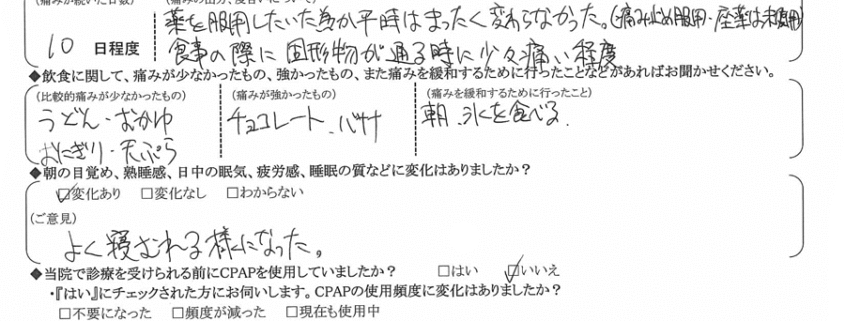 (痛みが続いた日数) (痛みの出方、度合いについて)
薬を服用していた為か平時はまったく変わらなかった。(痛み止め服用・座薬は未使用)
10 日程度 食事の際に固形物が通る時に少々痛い程度
◆飲食に関して、痛みが少なかったもの、強かったもの、また痛みを緩和するために行ったことなどがあればお聞かせください。
(比較的痛みが少なかったもの) (痛みが強かったもの) (痛みを緩和するために行ったこと)
うどん・おかゆ チョコレート、バナナ 朝、氷を食べる。
おにぎり・天ぷら
◆朝の目覚め、熟睡感、日中の眠気、疲労感、睡眠の質などに変化はありましたか？
☑変化あり □変化なし □わからない
(ご意見)
よく寝むれる様になった。
◆当院で診療を受けられる前にCPAPを使用していましたか？ □はい ☑いいえ
・『はい』にチェックされた方にお伺いします。CPAPの使用頻度に変化はありましたか？
□不要になった □頻度が減った □現在も使用中